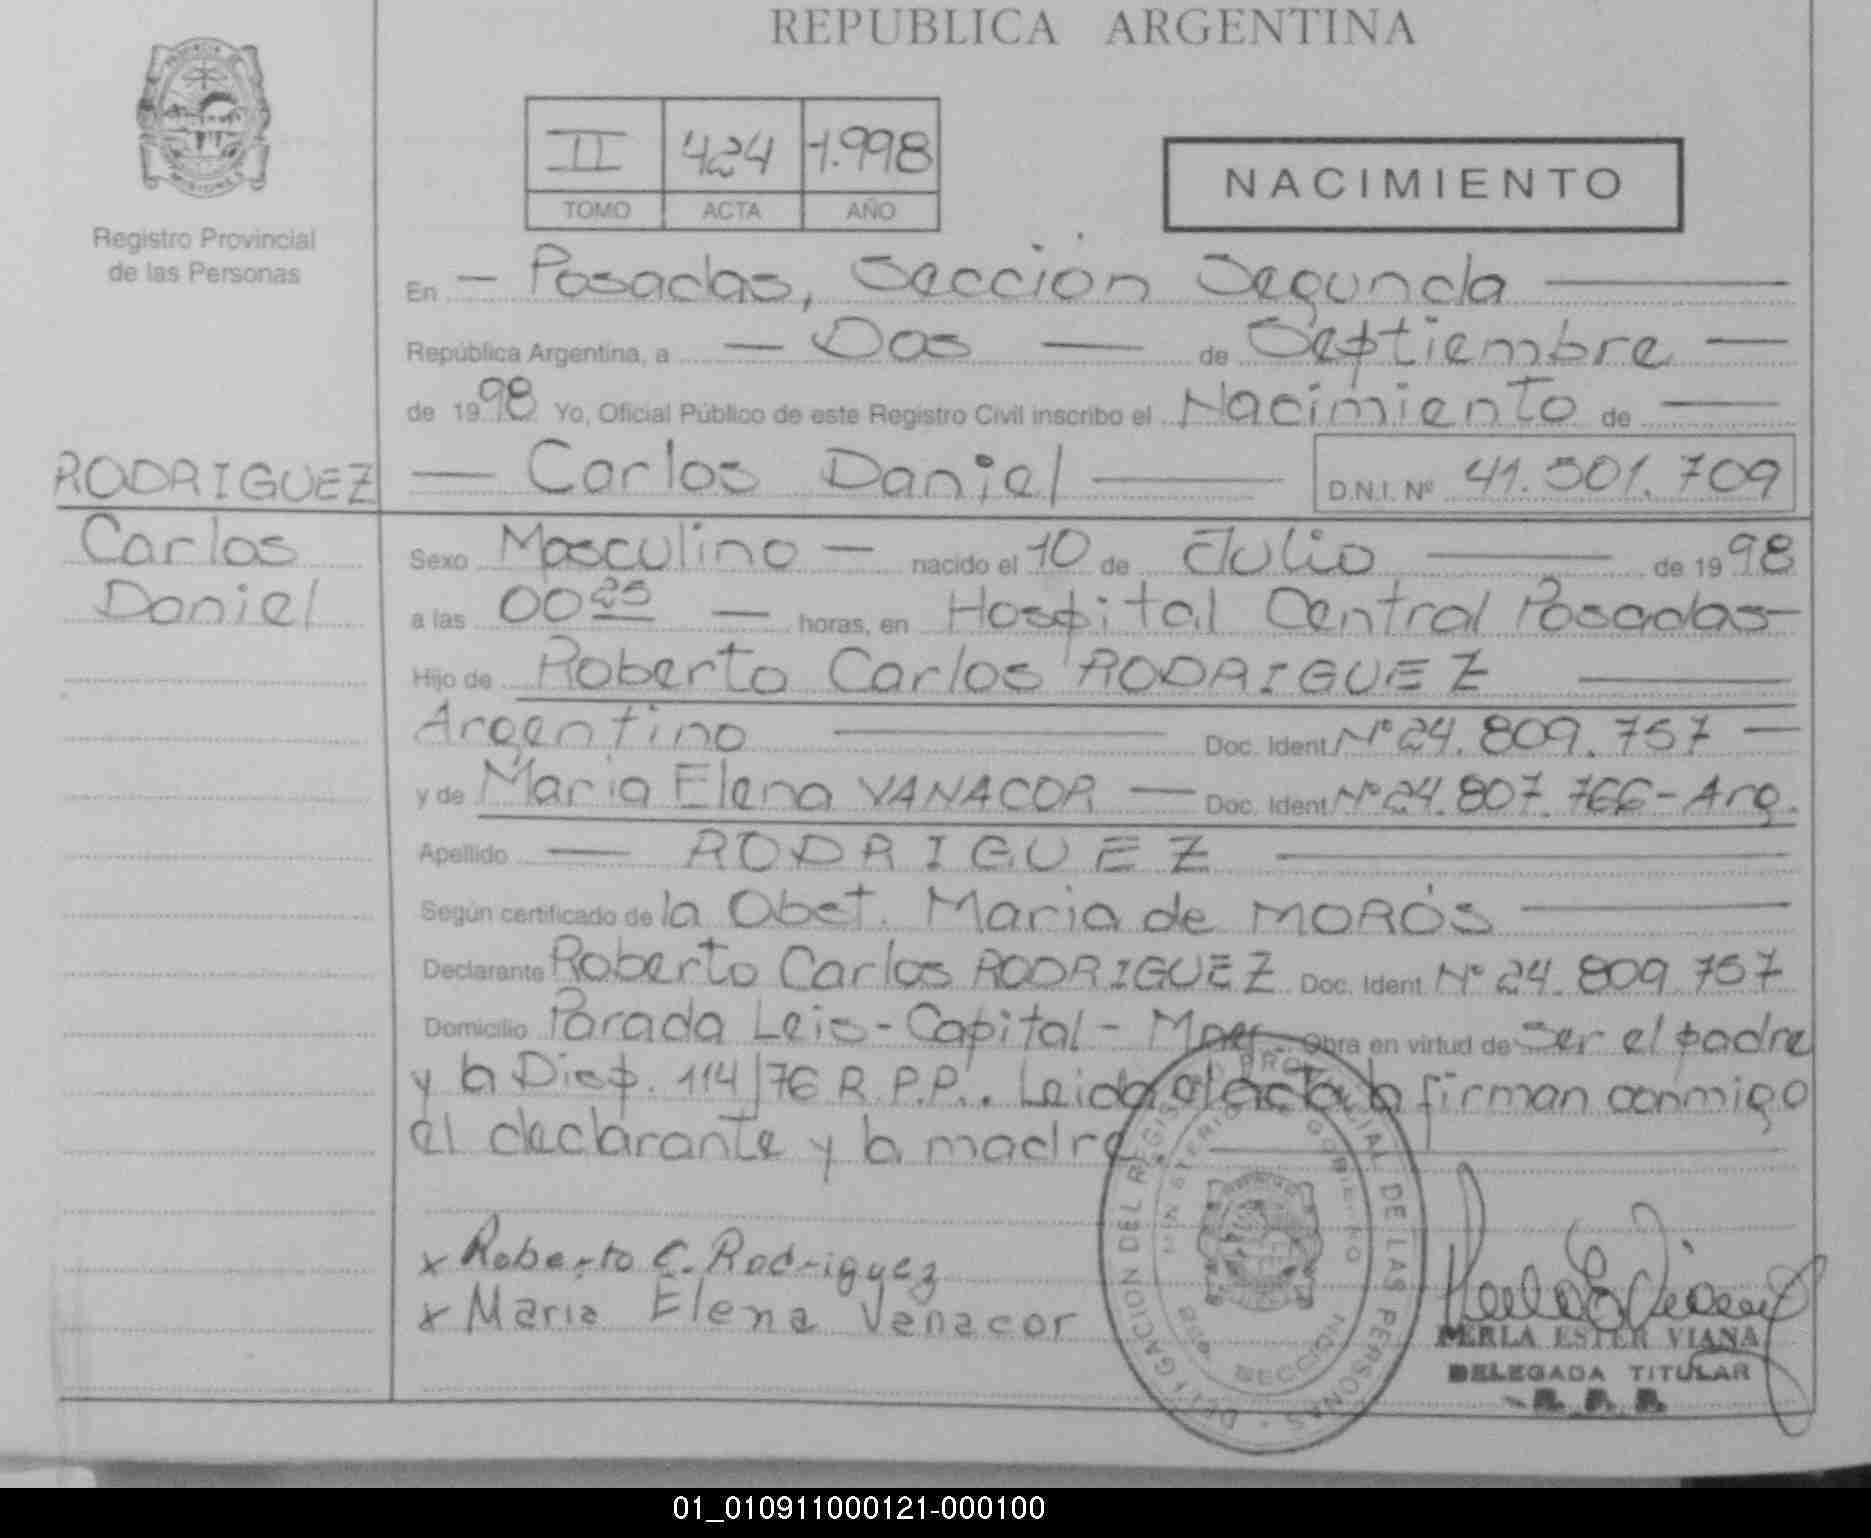 REPUBLICA ARGENTINA
PROVINCIA
MISIONES
Registro Provincial
de las Personas
II 424 1.998
TOMO ACTA AÑO
NACIMIENTO
En — Posadas, Sección Segunda —
República Argentina, a — Dos — de Septiembre —
de 1998 Yo, Oficial Público de este Registro Civil inscribo el Nacimiento de —
RODRIGUEZ — Carlos Daniel — D.N.I. Nº 41.501.709
Carlos
Daniel
Sexo Masculino — nacido el 10 de Julio — de 1998
a las 00 25 — horas, en Hospital Central Posadas-
Hijo de Roberto Carlos RODRIGUEZ —
Argentino — Doc. Ident. Nº 24.809.757 —
y de Maria Elena VANACOR — Doc. Ident. Nº 24.807.766 - Arg.
Apellido — RODRIGUEZ —
Según certificado de la Obst. Maria de MORÓS —
Declarante Roberto Carlos RODRIGUEZ Doc. Ident. Nº 24.809.757
Domicilio Parada Leis - Capital - Mnes Obra en virtud de Ser el padre
y la Disp. 114/76 R.P.P. Leida el acta la firman conmigo
el declarante y la madre —
DELEGACION DEL REGISTRO PROVINCIAL DE LAS PERSONAS
MINISTERIO DE GOBIERNO
SECCION
x Roberto C. Rodriguez
x Maria Elena Vanacor
PERLA ESTER VIANA
DELEGADA TITULAR
01_010911000121-000100